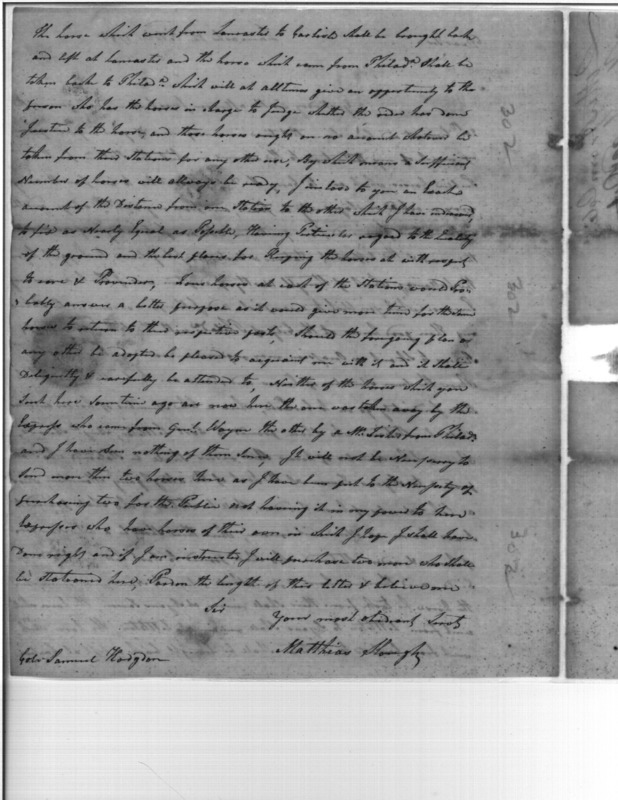 The horse which went from Lancaster to Carlisle shall be brought back
and left at Lancaster and the horse which came from Philada. shall be
taken back to Philada. which will at all times give an opportunity to the
person who has the horses in charge to Judge whether the rider has done
Justice to the horse, and those horses ought on no account whatever be
taken from their Stations for any other use, By which means a sufficient
Number of horses will allways be ready, I inclose to you an
amount of the Distance from one Station to the other which I have
to fix as Nearly Equal as Possible, Having Particular regard to the
of the ground and the best places for keeping the horses at with respect
to care & Provender, horses at each of the Stations would Pro-
bably answer a better purpose as it would give more time for the
horses to return to their respective posts, Should the foregoing plan or
any other be adopted be pleased to acquaint me with it and it shall
Deligently & carefully be attended to, Neither of the horses which you
Sent here some time ago are now here the one was taken away by the
Express who came from Genl. Wayne the other by a Mr. from Philada.
and I have seen nothing of them since, It will not be Necessary to
send more than two horses here as I have been put to the Necessity of
purchasing two for the Public not having it in my power to hire
Expresses who have horses of their own in which I hope I shall have
Done right and if I am instructed I will purchase two more who shall
be stationed here, Pardon the length of this letter & believe me
Sir
Your most obedient Servt
Matthias Slough
Colo. Samuel Hodgdon
302
302
302